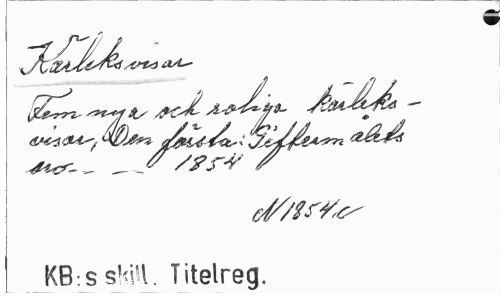 Kärleksvisor
Fem nya och roliga kärleks-
visor, Den första: Giftermålets
oro-- -- 1854
N 1854 c
KB:s skill. Titelreg.